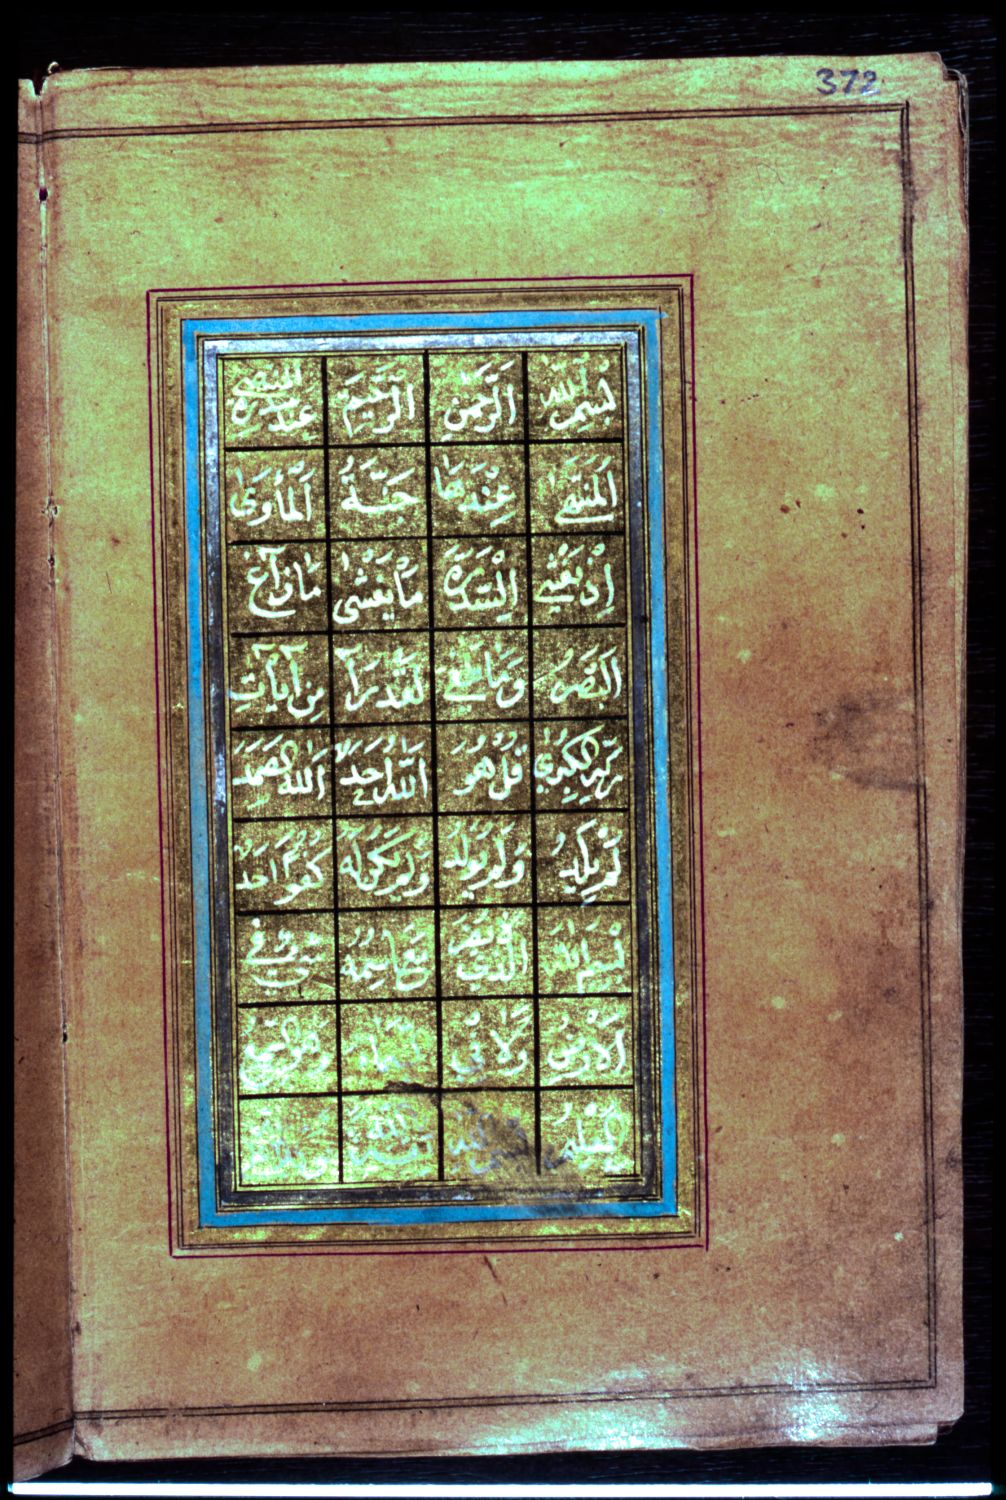 372
بسم الله الرحمن الرحيم عند سدرة المنتهى
المنتهى عندها جنة المأوى
إذ يغشى السدرة ما يغشى ما زاغ
البصر وما طغى لقد رأى من آيات
ربه الكبرى قل هو الله أحد الله الصمد
لم يلد ولم يولد ولم يكن له كفوا أحد
بسم الله الذي لا يضر مع اسمه شيء في
الأرض ولا في وهو السميع
العليم